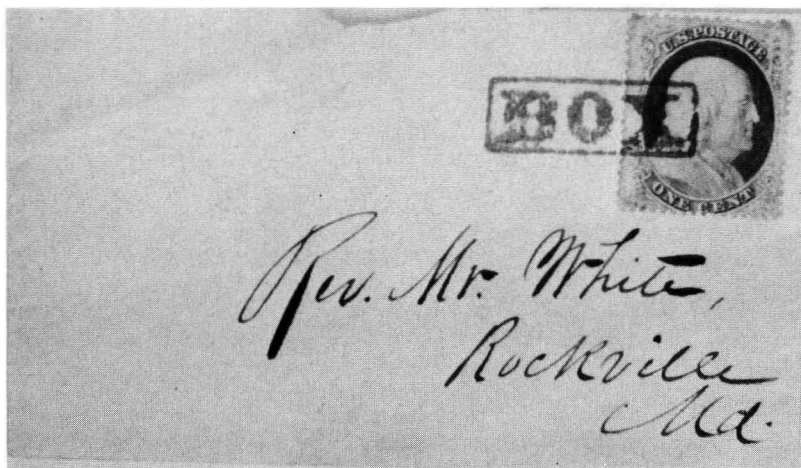 U.S. POSTAGE
BOX
ONE CENT
Rev. Mr. White,
Rockville
Md.